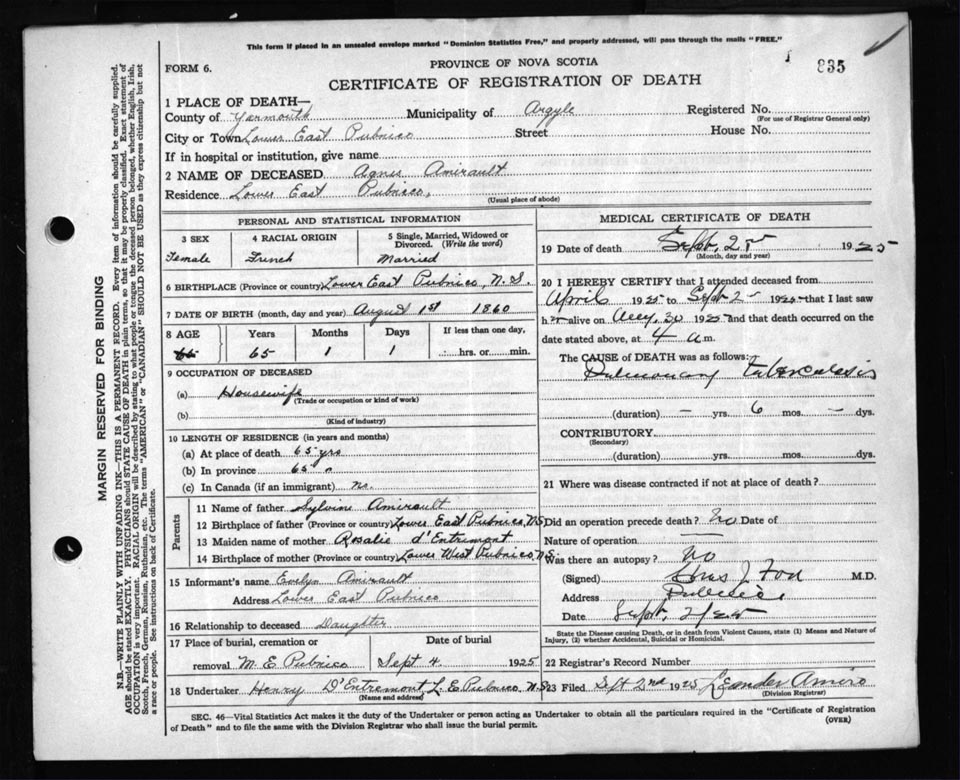 This form if placed in an unsealed envelope marked "Dominion Statistics Free," and properly addressed, will pass through the mails "FREE."
FORM 6.
PROVINCE OF NOVA SCOTIA
835
CERTIFICATE OF REGISTRATION OF DEATH
1 PLACE OF DEATH—
County of Yarmouth Municipality of Argyle Registered No.
(For use of Registrar General only)
City or Town Lower East Pubnico Street House No.
If in hospital or institution, give name
2 NAME OF DECEASED Agnes Amirault
Residence Lower East Pubnico,
(Usual place of abode)
PERSONAL AND STATISTICAL INFORMATION
3 SEX 4 RACIAL ORIGIN 5 Single, Married, Widowed or Divorced. (Write the word)
Female French Married
6 BIRTHPLACE (Province or country) Lower East Pubnico, N.S.
7 DATE OF BIRTH (month, day and year) August 1st 1860
8 AGE Years Months Days If less than one day,
65 1 1 hrs. or min.
9 OCCUPATION OF DECEASED
(a) Housewife
(Trade or occupation or kind of work)
(b)
(Kind of industry)
10 LENGTH OF RESIDENCE (in years and months)
(a) At place of death 65 yrs
(b) In province 65 "
(c) In Canada (if an immigrant) no.
Parents
11 Name of father Sylvini Amirault
12 Birthplace of father (Province or country) Lower East Pubnico, N.S
13 Maiden name of mother Rosalie d'Entremont
14 Birthplace of mother (Province or Country) Lower West Pubnico, N.S.
15 Informant's name Evelyn Amirault
Address Lower East Pubnico
16 Relationship to deceased Daughter
17 Place of burial, cremation or removal M. E. Pubnico Date of burial Sept 4 1925
18 Undertaker Henry D'Entremont L. E. Pubnico, N.S.
(Name and address)
MEDICAL CERTIFICATE OF DEATH
19 Date of death Sept, 2 1925
(Month, day and year)
20 I HEREBY CERTIFY that I attended deceased from
April 1925 to Sept 2 1925 that I last saw
h er alive on Aug, 30 1925 and that death occurred on
date stated above, at 4 a m.
The CAUSE of DEATH was as follows:
Pulmonary tuberculosis
(duration) — yrs. 6 mos. — dys.
CONTRIBUTORY
(Secondary)
(duration) yrs. mos. dys.
21 Where was disease contracted if not at place of death?
Did an operation precede death? no Date of
Nature of operation —
Was there an autopsy? no
(Signed) M.D.
Address Pubnico
Date Sept, 2/25
State the Disease causing Death, or in death from Violent Causes, state (1) Means and Nature of Injury, (2) whether Accidental, Suicidal or Homicidal.
22 Registrar's Record Number
23 Filed Sept 2nd 1925 Leander Amiro
(Division Registrar)
SEC. 46—Vital Statistics Act makes it the duty of the Undertaker or person acting as Undertaker to obtain all the particulars required in the "Certificate of Registration of Death" and to file the same with the Division Registrar who shall issue the burial permit.
(OVER)
MARGIN RESERVED FOR BINDING
N.B.—WRITE PLAINLY WITH UNFADING INK—THIS IS A PERMANENT RECORD. Every item of information should be carefully supplied.
AGE should be stated EXACTLY. PHYSICIANS should STATE CAUSE OF DEATH in plain terms, so that it may be properly classified. Exact statement of
OCCUPATION is very important. RACIAL ORIGIN will be described by stating to what people or tongue the deceased person belonged, whether English, Irish,
Scotch, French, German, Russian, Ruthenian, etc. The terms "AMERICAN" or "CANADIAN" SHOULD NOT BE USED as they express citizenship but not
a race or people. See instructions on back of Certificate.